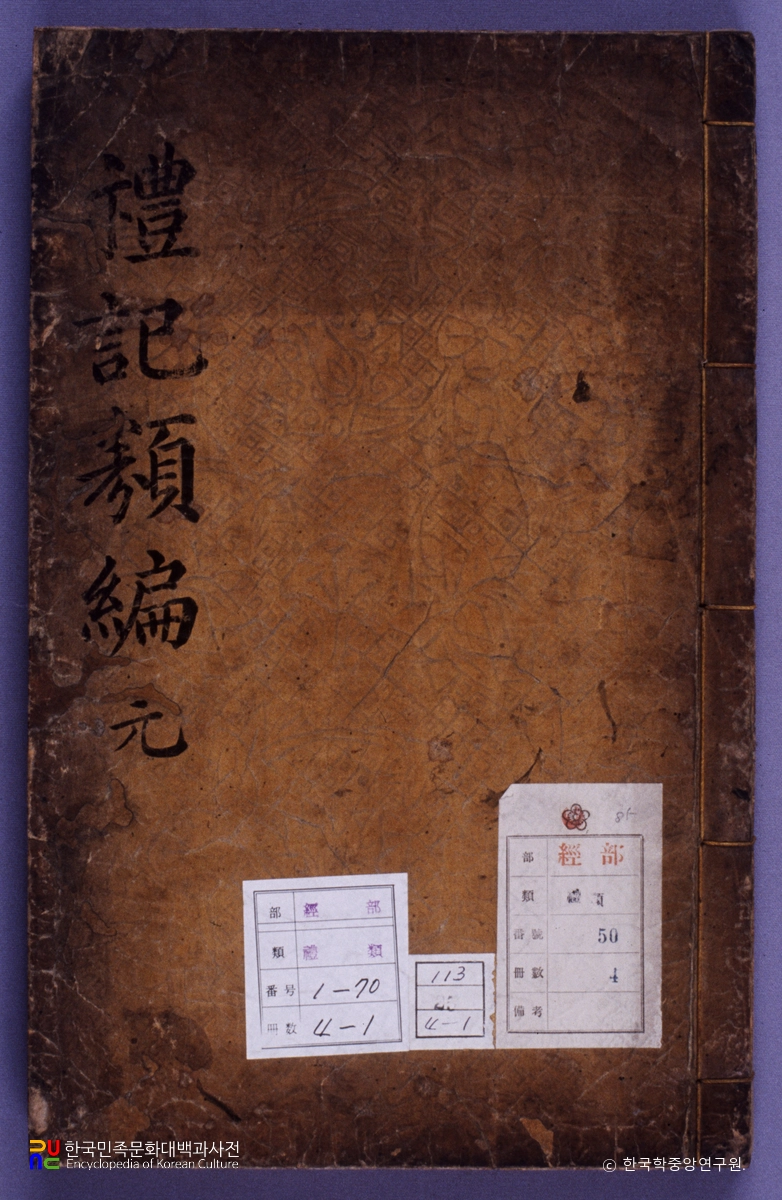 禮記類編 元
部 經部
類 禮類
番号 1-70
冊数 4-1
113
4-1
85
部 經部
類 禮
番號 50
冊數 4
備考
한국민족문화대백과사전
Encyclopedia of Korean Culture
© 한국학중앙연구원.